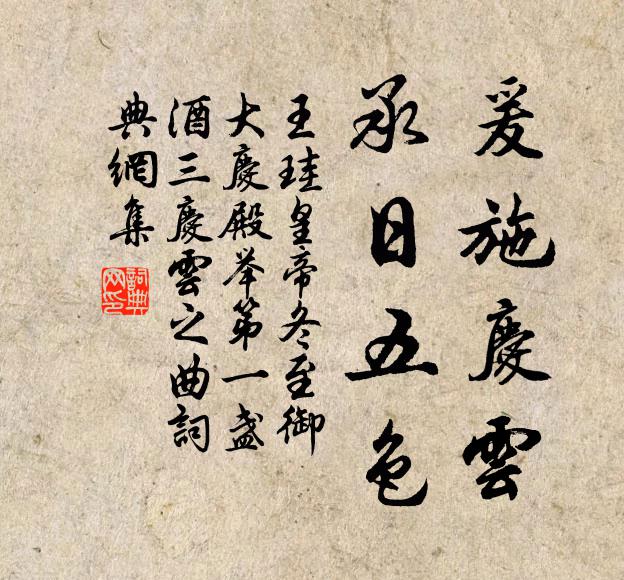 爰施慶雲
承日五色
王珪皇帝冬至御
大慶殿举第一盏
酒三慶雲之曲詞
典網集
詞典网印